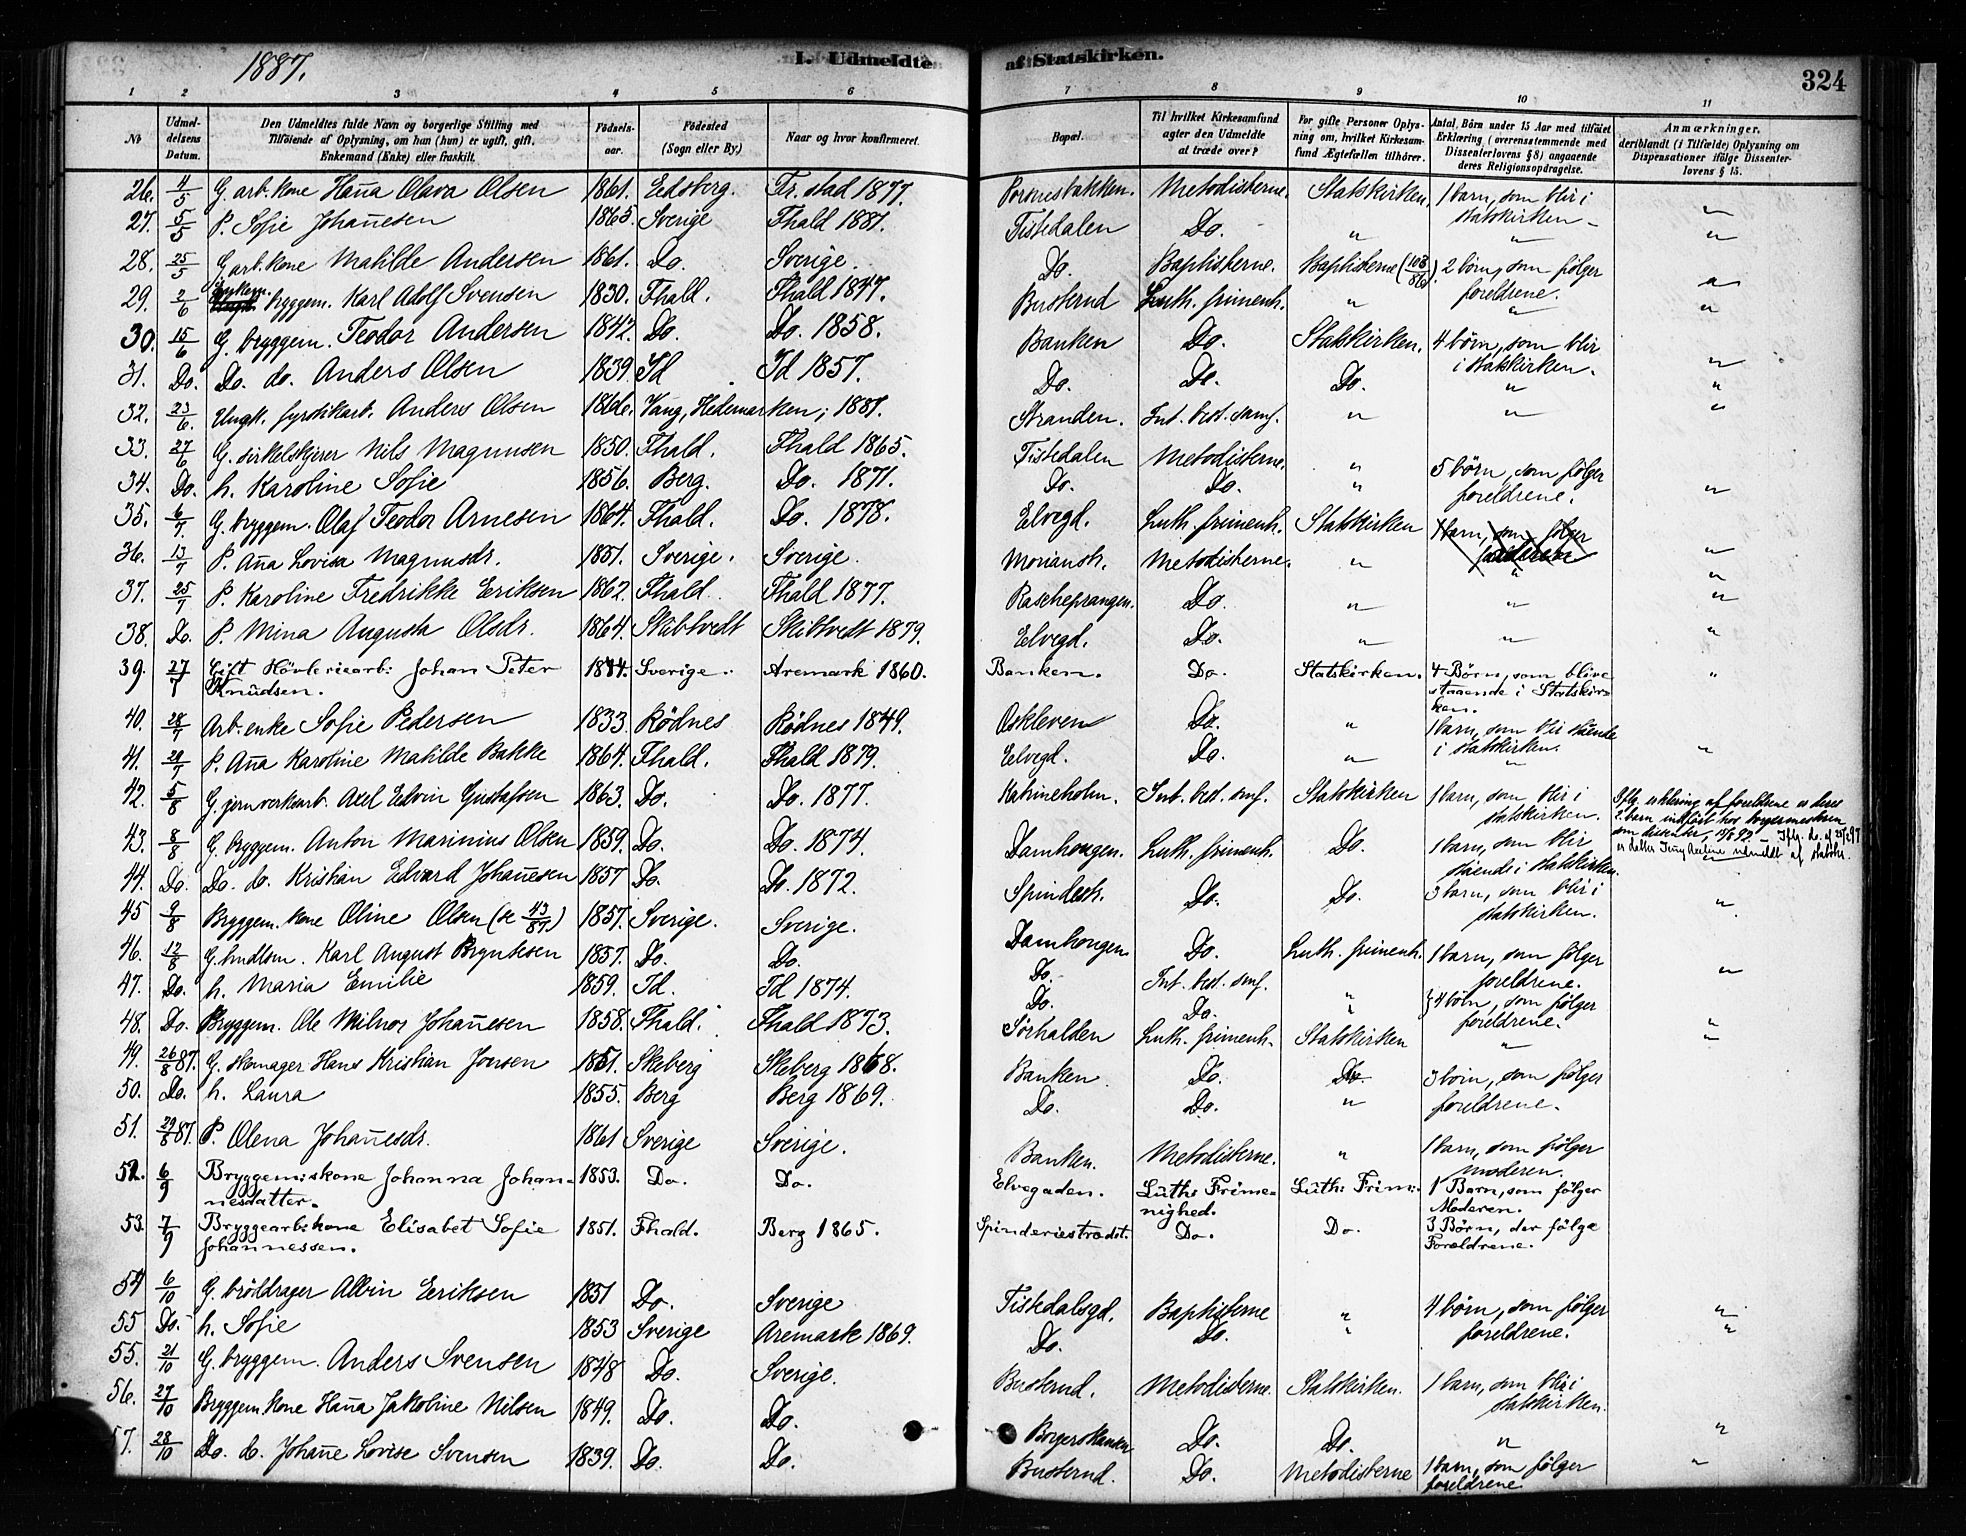 1887.
I. Udmeldte af Statskirken.
324
1 2 3 4 5 6 7 8 9 10 11
No
Udmeldelsens Datum.
Den Udmeldtes fulde Navn og borgerlige Stilling med
Tilföiende af Oplysning, om han (hun) er ugift, gift,
Enkemand (Enke) eller fraskilt.
Födselsaar.
Födested
(Sogn eller By.)
Naar og hvor konfirmeret.
Bopæl.
Til hvilket Kirkesamfund
agter den Udmeldte
at træde over?
For gifte Personer Oplysning om, hvilket Kirkesamfund Ægtefællen tilhörer.
Antal Börn under 15 Aar med tilföiet
Erklæring (overensstemmende med
Dissenterlovens § 8) angaaende
deres Religionsopdragelse.
Anmærkninger,
deriblandt (i Tilfælde) Oplysning om
Dispensationer ifölge Dissenterlovens § 15.
26. 4/5 G. arb. kone Hana Olava Olsen 1861. Eidsberg. Fr.stad 1877. Metodisterne. Statskirken. 1 barn, som blir i statskirken. "
27. 5/5 P. Sofie Johanesen 1865. Sverige Fhald 1881. Tistedalen Do. " " "
28. 25/5 G. arb. kone Matilde Andersen 1861. Do. Sverige. Do. Baptisterne. Baptisterne (108/86). 2 börn, som fölger foreldrene. "
29. 2/6 Enkem. bryggem. Karl Adolf Svensen 1830. Fhald. Fhald 1847. Busterud Luth. frimenh. " " "
30. 15/6 G. bryggem. Teodor Andersen 1842. Do. Do. 1858. Banken Do. Statskirken. 4 börn, som blir i statskirken. "
31. Do. Do. do. Anders Olsen 1839. Id Id 1857. Do. Do. Do. " "
32. 23/6 Ungk. fyrstikarb. Anders Olsen 1866. Vang, Hedemarken, 1881. Stranden. Int. best. samf. " " "
33. 27/6 G. sirkelskjerer Nils Magnusen 1850. Fhald. Fhald 1865. Tistedalen Metodisterne. " 5 börn, som fölger
34. Do. h. Karoline Sofie 1856. Berg. Do. 1871. Do. Do. " foreldrene. "
35. 6/7 G. bryggem. Olaf Teodor Arnesen 1864. Fhald. Do. 1878. Elvegd. Luth. frimenh. Statskirken 1 barn, som fölger
36. 13/7 P. Ana Lovisa Magnusdr. 1851. Sverige. Sverige. Metodisterne. " " "
37. 25/7 P. Karoline Fredrikke Eriksen 1862. Fhald. Fhald 1877. Do. " " "
38. Do. P. Mina Augusta Olsdr. 1864. Skibtvedt Skibtvedt 1879. Elvegd. Do. " " "
39. 27/7 Gift Hövleriearb: Johan Peter Knudsen. 1844. Sverige. Aremark 1860. Banken. Do. Statskirken. 4 Börn, som blive staaende i Statskirken. "
40. 28/7 Arb. enke Sofie Pedersen 1833 Rödnes Rödnes 1849. Oskleven Do. " 1 barn, som blir stående i statskirken. "
41. 29/7 P. Ana Karoline Matilde Bakke 1864. Fhald. Fhald 1879. Elvegd. Do. " "
42. 5/8 G. jernverksarb. Axel Edvin Gustafsen 1863. Do. Do. 1877. Katrineholm. Int. best. smf. Statskirken 1 barn, som blir i statskirken. Iflg. erklæring af foreldrene er deres 2. barn indfört hos borgermesteren som dissenter,
43. 8/8 G. bryggem. Anton Marinius Olsen 1859. Do. Do. 1874. Damhaugen. Luth. frimenh. Do. 1 barn, som blir stående i statskirken.
44. Do. Do. do. Kristian Edvard Johanesen 1857 Do. Do. 1872. Do. Do. 3 barn, som blir i statskirken. "
45 9/8 Bryggem. kone Oline Olsen (se 43/87.) 1857. Sverige. Sverige. Damhaugen Do. Luth. frimenh. 1 barn, som fölger foreldrene. "
46. 12/8 G. hndlsm. Karl August Bryntesen 1857. Do. Do. Do. Int. best. smf. " 4 börn, som fölger
47. Do. h. Maria Emilie 1859. Id. Id 1874. Do. Do. " foreldrene. "
48. Do. Bryggem. Ole Milnor Johanesen 1858. Fhald. Fhald 1873. Sörhalden Luth. frimenh. Statskirken " "
49. 26/8 87. G. skomager Hans Kristian Jonsen 1851. Skeberg Skeberg 1868. Banken Do. Do. 3 börn, som fölger
50. Do. h. Laura 1855. Berg Berg 1869. Do. Do. " foreldrene.
51. 29/8 87. P. Olena Johanesdr. 1861 Sverige Sverige. Banken. Metodisterne. " 1 barn, som fölger moderen.
52. 6/9 Bryggemiskone Johanna Johannesdatter. 1853. Do. Do. Elvegaden. Luth: Frimenighed. Luth: Frim: 1 Barn, som fölger Moderen.
53. 7/9 Bryggearbskone Elisabet Sofie Johannessen. 1851. Fhald. Berg 1865. Spinderiestrædet. Do. Do. 3 Börn, der fölge Forældrene.
54 6/10 G. bröddrager Albin Eriksen 1851 Do. Sverige Tistedalsgd. Baptisterne " 4 börn, som fölger "
55 Do. h. Sofie 1853 Sverige Aremark 1869. Do. Do. " foreldrene. "
55. 21/10 G. bryggem. Anders Svensen 1848 Do. Sverige. Busterud. Metodisterne. Statskirken. 1 barn, som blir i statskirken.
56. 27/10 Bryggem. kone Hana Jakobine Nilsen 1849. Do. Do. Do. Do. " "
57. 28/10 Do. do. Johane Lovise Svensen 1839. Do. Do. Busterud. Do. Metodisterne 1 barn, som fölger foreldrene "